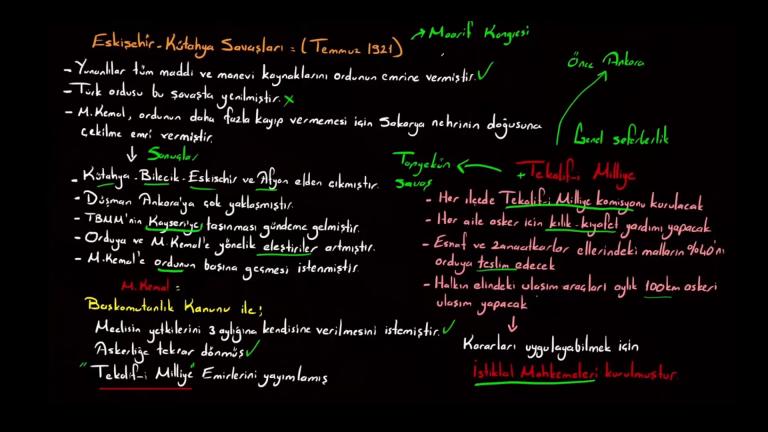 Eskişehir-Kütahya Savaşları = (Temmuz 1921)
→ Maarif Kongresi
- Yunanlılar tüm maddi ve manevi kaynaklarını ordunun emrine vermiştir. ✓
- Türk ordusu bu savaşta yenilmiştir. x
- M.Kemal, ordunun daha fazla kayıp vermemesi için Sakarya nehrinin doğusuna
çekilme emri vermiştir.
↓ Sonuçlar
- Kütahya-Bilecik-Eskişehir ve Afyon elden çıkmıştır.
- Düşman Ankara'ya çok yaklaşmıştır.
- TBMM'nin Kayseri'ye taşınması gündeme gelmiştir.
- Orduya ve M.Kemal'e yönelik eleştiriler artmıştır.
- M.Kemal'e ordunun başına geçmesi istenmiştir.
M.Kemal =
Başkomutanlık Kanunu ile;
Meclisin yetkilerini 3 aylığına kendisine verilmesini istemiştir. ✓
Askerliğe tekrar dönmüş ✓
"Tekalif-i Milliye" Emirlerini yayımlamış
Önce Ankara
Genel seferberlik
Topyekün
savaş
+ Tekalif-i Milliye
- Her ilçede Tekalif-i Milliye komisyonu kurulacak
- Her aile asker için kılık-kıyafet yardımı yapacak
- Esnaf ve zanaatkarlar ellerindeki malların %40'nı
orduya teslim edecek
- Halkın elindeki ulaşım araçları aylık 100km askeri
ulaşım yapacak
↓
Kararları uygulayabilmek için
İstiklal Mahkemeleri kurulmuştur